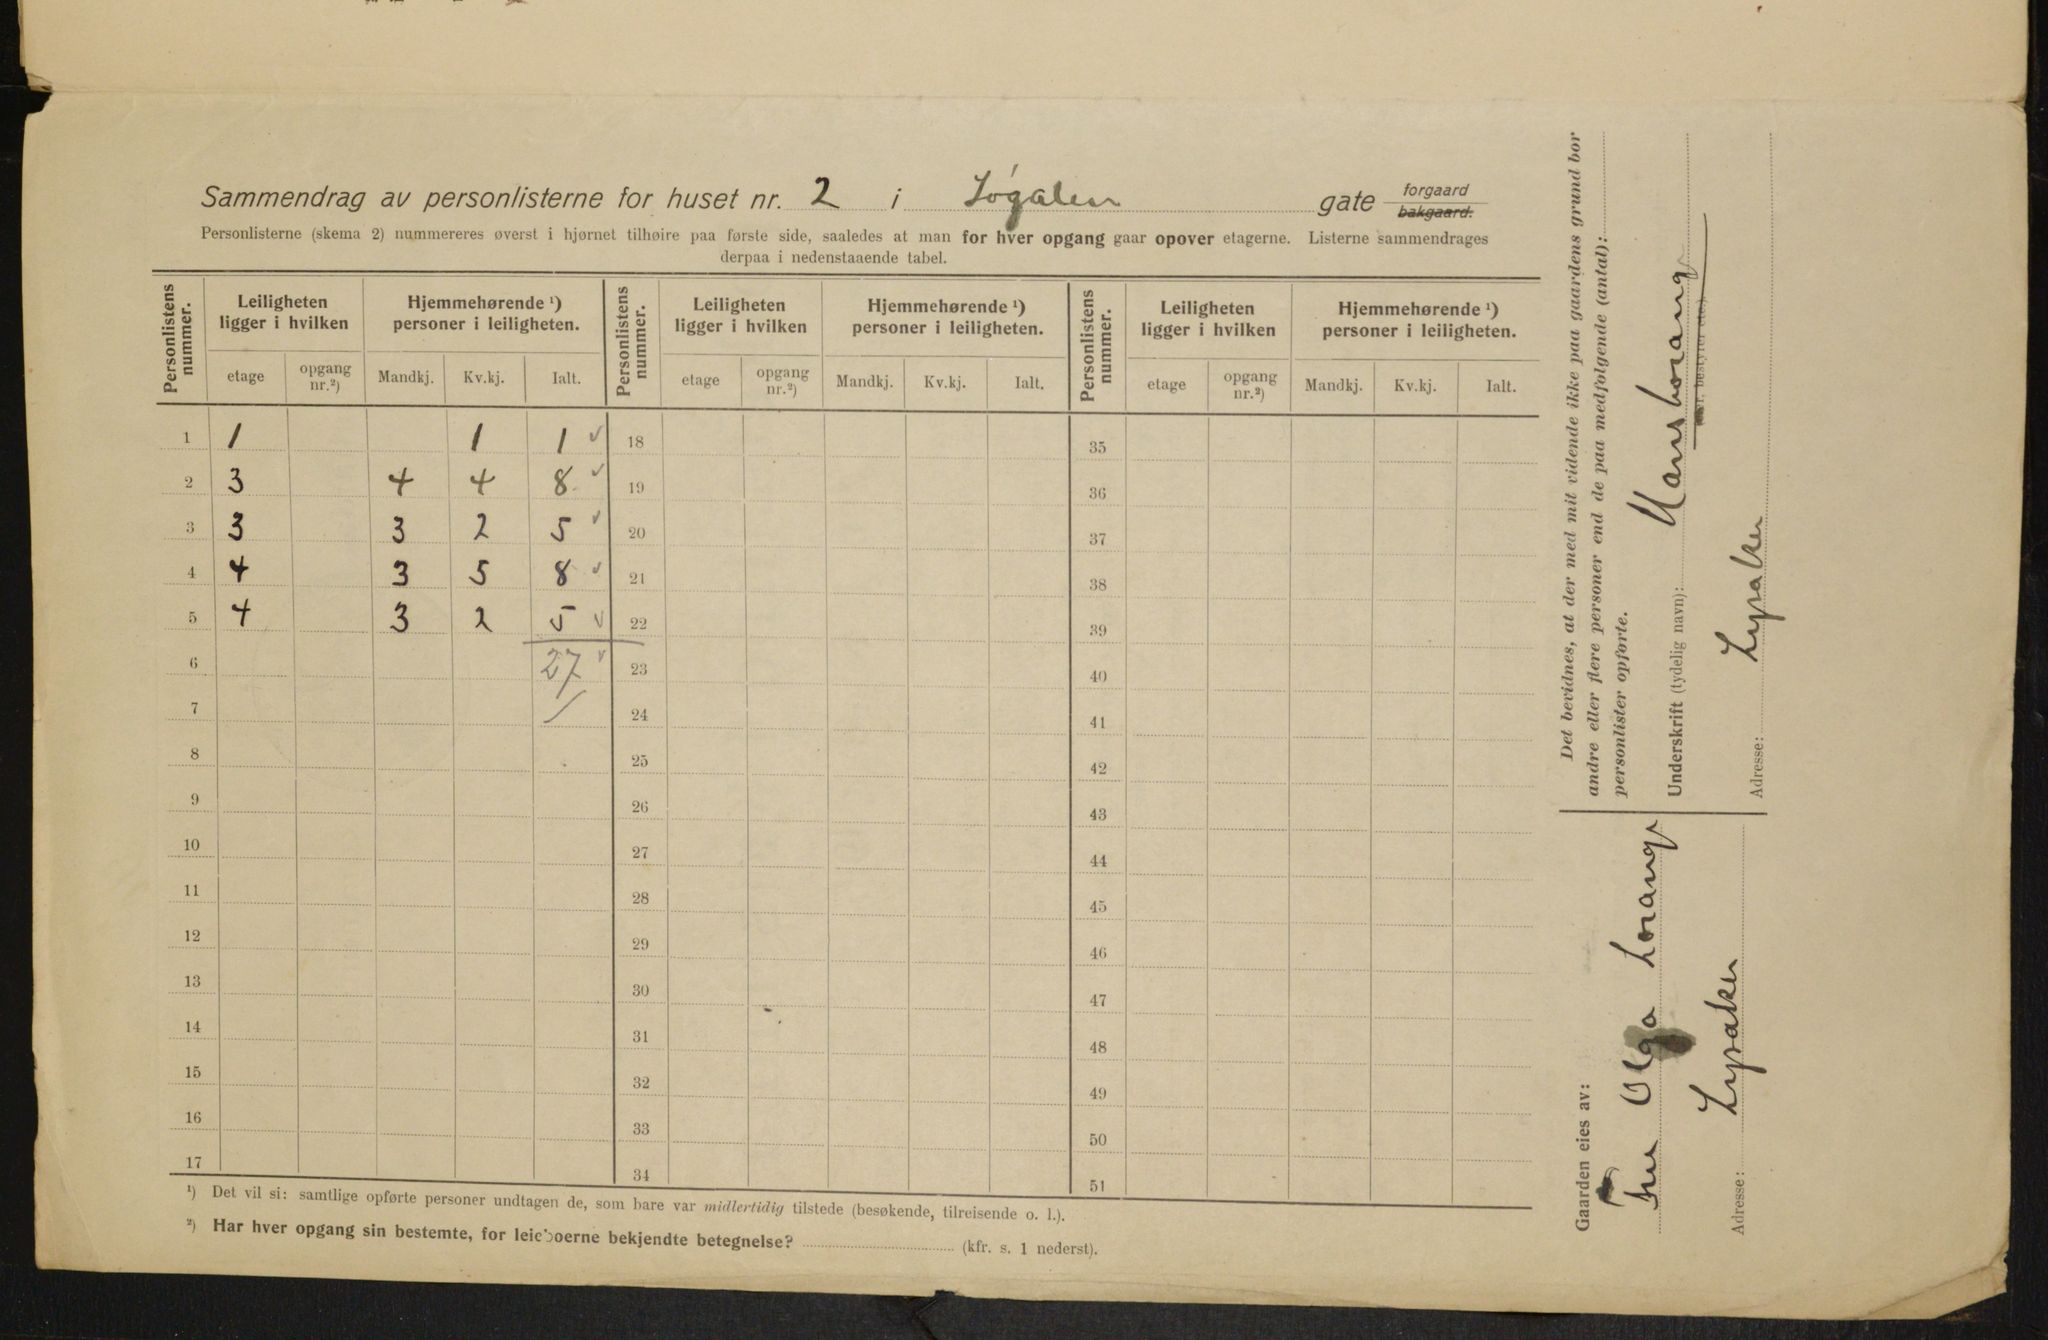 Sammendrag av personlisterne for huset nr. 2 i Løgaten gate forgaard bakgaard.
Personlisterne (skema 2) nummereres øverst i hjørnet tilhøire paa første side, saaledes at man for hver opgang gaar opover etagerne. Listerne sammendrages
derpaa i nedenstaaende tabel.
Personlistens nummer. Leiligheten ligger i hvilken Hjemmehørende ¹) personer i leiligheten. Personlistens nummer. Leiligheten ligger i hvilken Hjemmehørende ¹) personer i leiligheten. Personlistens nummer. Leiligheten ligger i hvilken Hjemmehørende ¹) personer i leiligheten.
etage opgang nr.²) Mandkj. Kv.kj. Ialt. etage opgang nr.²) Mandkj. Kv.kj. Ialt. etage opgang nr.²) Mandkj. Kv.kj. Ialt.
1 1 1 1 18 35
2 3 4 4 8 19 36
3 3 3 2 5 20 37
4 4 3 5 8 21 38
5 4 3 2 5 22 39
6 27 23 40
7 24 41
8 25 42
9 26 43
10 27 44
11 28 45
12 29 46
13 30 47
14 31 48
15 32 49
16 33 50
17 34 51
¹) Det vil si: samtlige opførte personer undtagen de, som bare var midlertidig tilstede (besøkende, tilreisende o. l.).
²) Har hver opgang sin bestemte, for leieboerne bekjendte betegnelse? (kfr. s. 1 nederst).
Det bevidnes, at der med mit vidende ikke paa gaardens grund bor
andre eller flere personer end de paa medfolgende (antal):
personlister opforte.
Underskrift (tydelig navn):
bestyrer etc.).
Adresse: Lysaker
Gaarden eies av:
Fru Olga Lorange
Adresse: Lysaker